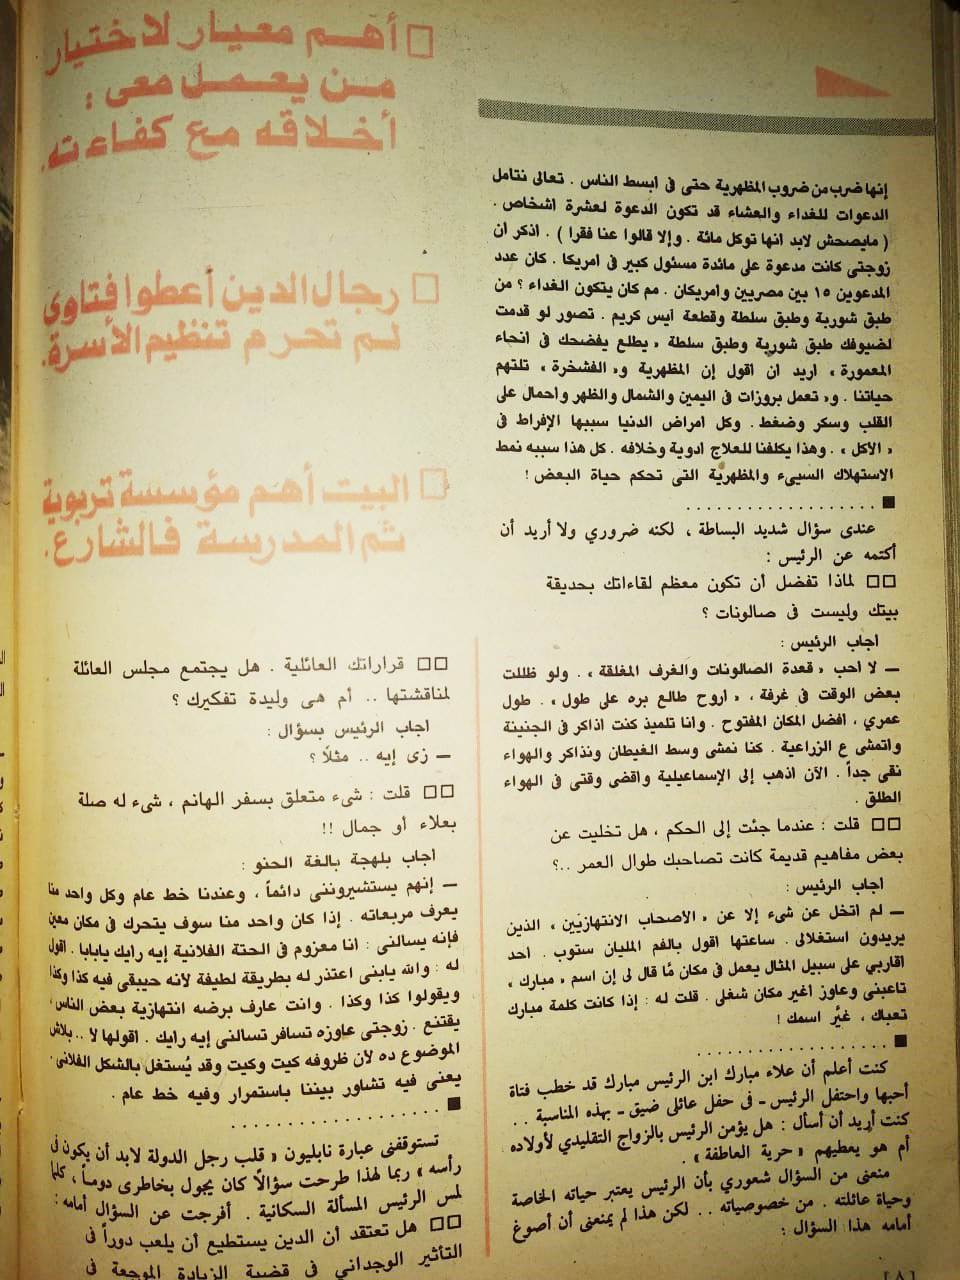 □ أهم معيار لاختيار
من يعمل معى :
أخلاقه مع كفاءته.
□ رجال الدين أعطوا فتاوى
لم تحرم تنظيم الأسرة.
□ البيت أهم مؤسسة تربوية
ثم المدرسة فالشارع.
إنها ضرب من ضروب المظهرية حتى فى ابسط الناس . تعالى نتامل
الدعوات للغداء والعشاء قد تكون الدعوة لعشرة اشخاص .
( مايصحش لابد انها توكل مائة . وإلا قالوا عنا فقرا ) . اذكر ان
زوجتى كانت مدعوة على مائدة مسئول كبير فى امريكا . كان عدد
المدعوين ١٥ بين مصريين وامريكان . مم كان يتكون الغداء ؟ من
طبق شوربة وطبق سلطة وقطعة آيس كريم . تصور لو قدمت
لضيوفك طبق شوربة وطبق سلطة « يطلع يفضحك فى انحاء
المعمورة » اريد ان اقول إن المظهرية و« الفشخرة » تلتهم
حياتنا . و« تعمل بروزات فى اليمين والشمال والظهر وأحمال على
القلب وسكر وضغط . وكل امراض الدنيا سببها الإفراط فى
« الأكل » . وهذا يكلفنا للعلاج ادوية وخلافه . كل هذا سببه نمط
الاستهلاك السيىء والمظهرية التى تحكم حياة البعض !
■ . . . . . . . . . . . . . . . . . .
عندى سؤال شديد البساطة ، لكنه ضروري ولا أريد أن
أكتمه عن الرئيس :
□□ لماذا تفضل أن تكون معظم لقاءاتك بحديقة
بيتك وليست فى صالونات ؟
اجاب الرئيس :
ــ لا احب « قعدة الصالونات والغرف المغلقة » . ولو ظللت
بعض الوقت فى غرفة ، « اروح طالع بره على طول » . طول
عمري ، افضل المكان المفتوح . وانا تلميذ كنت اذاكر فى الجنينة
واتمشى ع الزراعية . كنا نمشى وسط الغيطان ونذاكر والهواء
نقى جداً . الآن اذهب إلى الإسماعيلية واقضى وقتى فى الهواء
الطلق .
□□ قلت : عندما جئت إلى الحكم ، هل تخليت عن
بعض مفاهيم قديمة كانت تصاحبك طوال العمر ..؟
اجاب الرئيس :
ــ لم اتخل عن شىء إلا عن « الأصحاب الانتهازيين » الذين
يريدون استغلالى . ساعتها اقول بالفم المليان ستوب . أحد
اقاربي على سبيل المثال يعمل فى مكان مَا قال لى إن اسم « مبارك »
تاعبنى وعاوز اغير مكان شغلى . قلت له : إذا كانت كلمة مبارك
تعباك ، غيَّر اسمك !
■ . . . . . . . . . . . . . . . . . .
كنت أعلم أن علاء مبارك ابن الرئيس مبارك قد خطب فتاة
أحبها واحتفل الرئيس ــ فى حفل عائلى ضيق ــ بهذه المناسبة ..
كنت أريد أن أسأل : هل يؤمن الرئيس بالزواج التقليدي لأولاده
أم هو يعطيهم « حرية العاطفة » .
منعنى من السؤال شعوري بأن الرئيس يعتبر حياته الخاصة
وحياة عائلته . من خصوصياته .. لكن هذا لم يمنعنى أن أصوغ
أمامه هذا السؤال :
□□ قراراتك العائلية . هل يجتمع مجلس العائلة
لمناقشتها .. أم هى وليدة تفكيرك ؟
اجاب الرئيس بسؤال :
ــ زى إيه .. مثلاً ؟
□□ قلت : شىء متعلق بسفر الهانم ، شىء له صلة
بعلاء أو جمال !!
اجاب بلهجة بالغة الحنو :
ــ إنهم يستشيروننى دائماً ، وعندنا خط عام وكل واحد منا
يعرف مربعاته . إذا كان واحد منا سوف يتحرك فى مكان معين
فإنه يسالنى : انا معزوم فى الحتة الفلانية إيه رايك يابابا . اقول
له : والله يابنى اعتذر له بطريقة لطيفة لأنه حيبقى فيه كذا وكذا
ويقولوا كذا وكذا . وانت عارف برضه انتهازية بعض الناس ،
يقتنع . زوجتى عاوزه تسافر تسالنى إيه رايك . اقولها لا .. بلاش
الموضوع ده لأن ظروفه كيت وكيت وقد يُستغل بالشكل الفلانى .
يعنى فيه تشاور بيننا باستمرار وفيه خط عام .
■ . . . . . . . . . . . . . . . . . .
تستوقفنى عبارة نابليون « قلب رجل الدولة لابد أن يكون فى
رأسه » ربما لهذا طرحت سؤالاً كان يجول بخاطرى دوماً ، كلما
لمس الرئيس المسألة السكانية . أفرجت عن السؤال أمامه :
□□ هل تعتقد أن الدين يستطيع أن يلعب دوراً فى
التأثير الوجداني فى قضية الزيادة الموجعة فى
[٨]